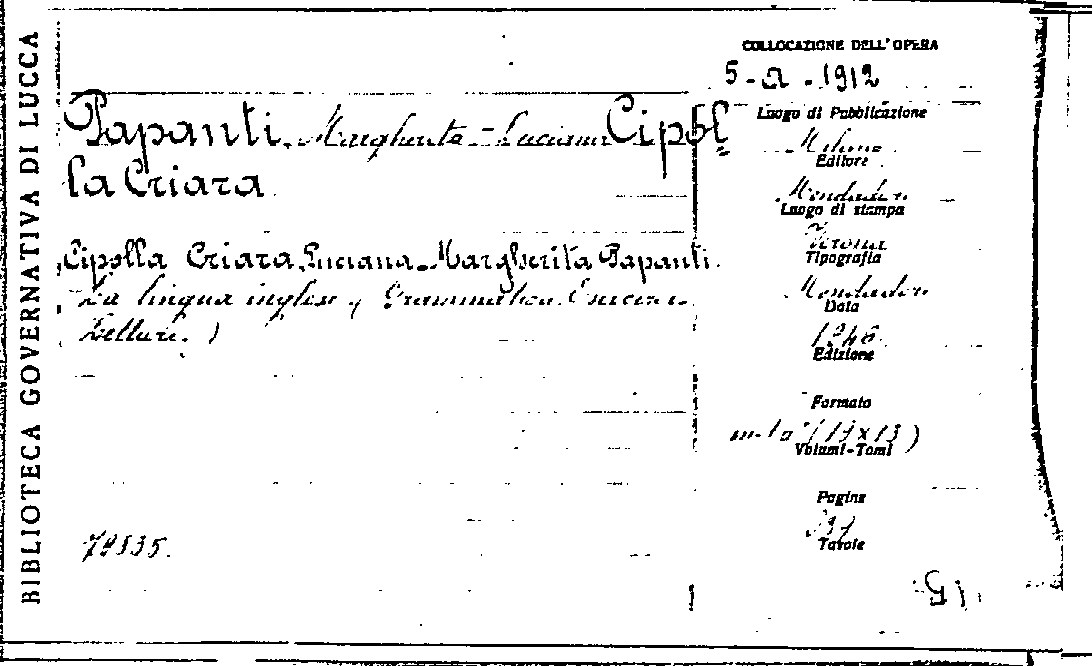 BIBLIOTECA GOVERNATIVA DI LUCCA
COLLOCAZIONE DELL'OPERA
5-a-1912
Papanti, Margherita - Luciana Cipol
la Criara
Cipolla Criara, Luciana - Margherita Papanti.
La lingua inglese (Grammatica
Letture.)
79535.
Luogo di Pubblicazione
Milano
Editore
Mondadori
Luogo di stampa
Verona
Tipografia
Mondadori
Data
1946
Edizione
Formato
(19x13)
Volumi-Tomi
Pagine
Tavole